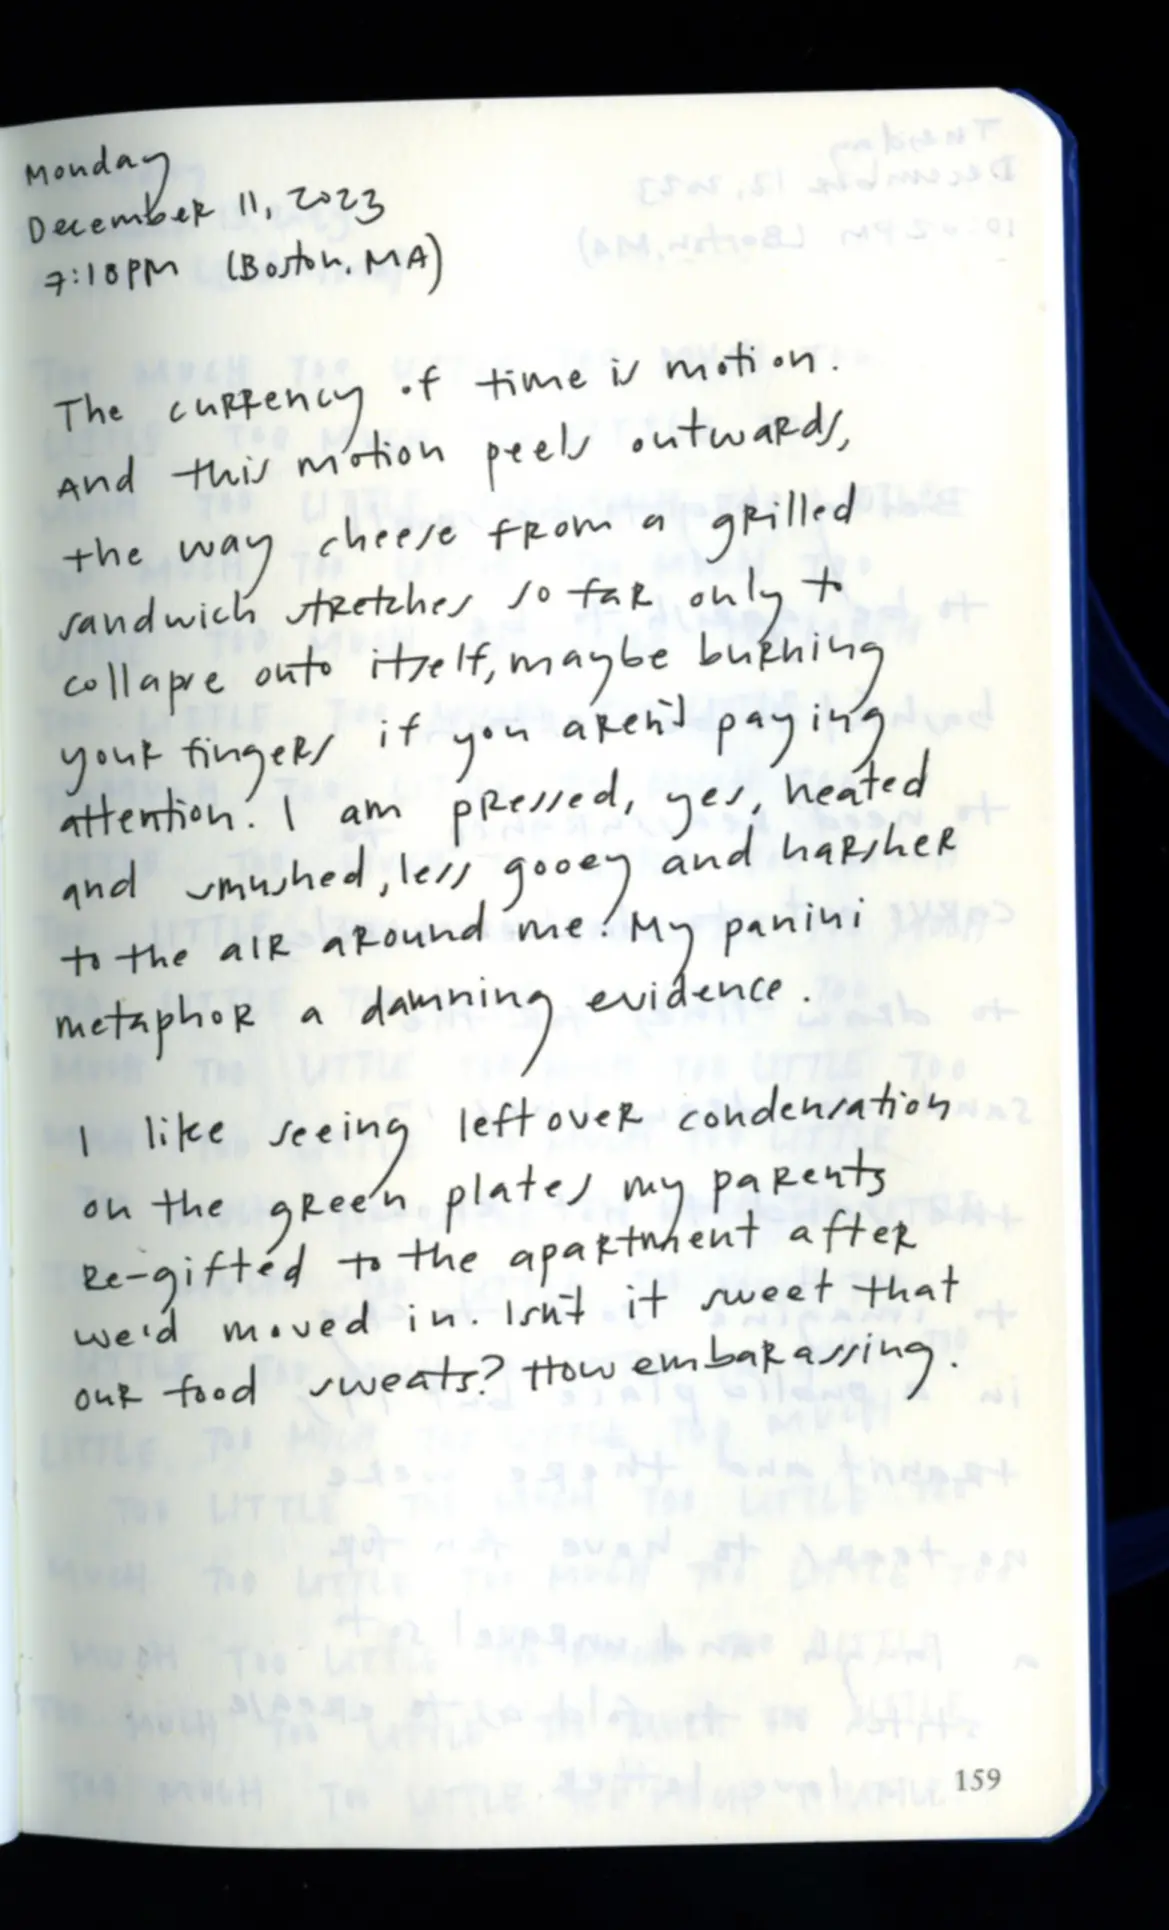 Monday
December 11, 2023
7:18PM (Boston, MA)
The currency of time is motion.
And this motion peels outwards,
the way cheese from a grilled
sandwich stretches so far only to
collapse onto itself, maybe burning
your fingers if you aren't paying
attention. I am pressed, yes, heated
and smushed, less gooey and harsher
to the air around me. My panini
metaphor a damning evidence.
I like seeing leftover condensation
on the green plates my parents
re-gifted to the apartment after
we'd moved in. Isn't it sweet that
our food sweats? How embarassing.
159